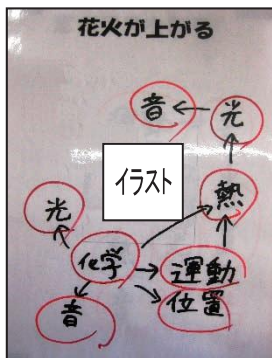 花火が上がる
音
光
イラスト
熱
光
化学
運動
位置
音